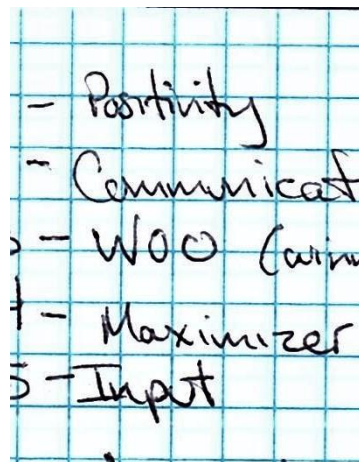 - Positivity
- Communicat
- WOO (
4 - Maximizer
5 - Input